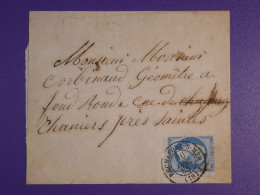 Monsieur Monsieur
Corbinaud Géomètre a
fond Ronde Cne de
Chaniers près Saintes